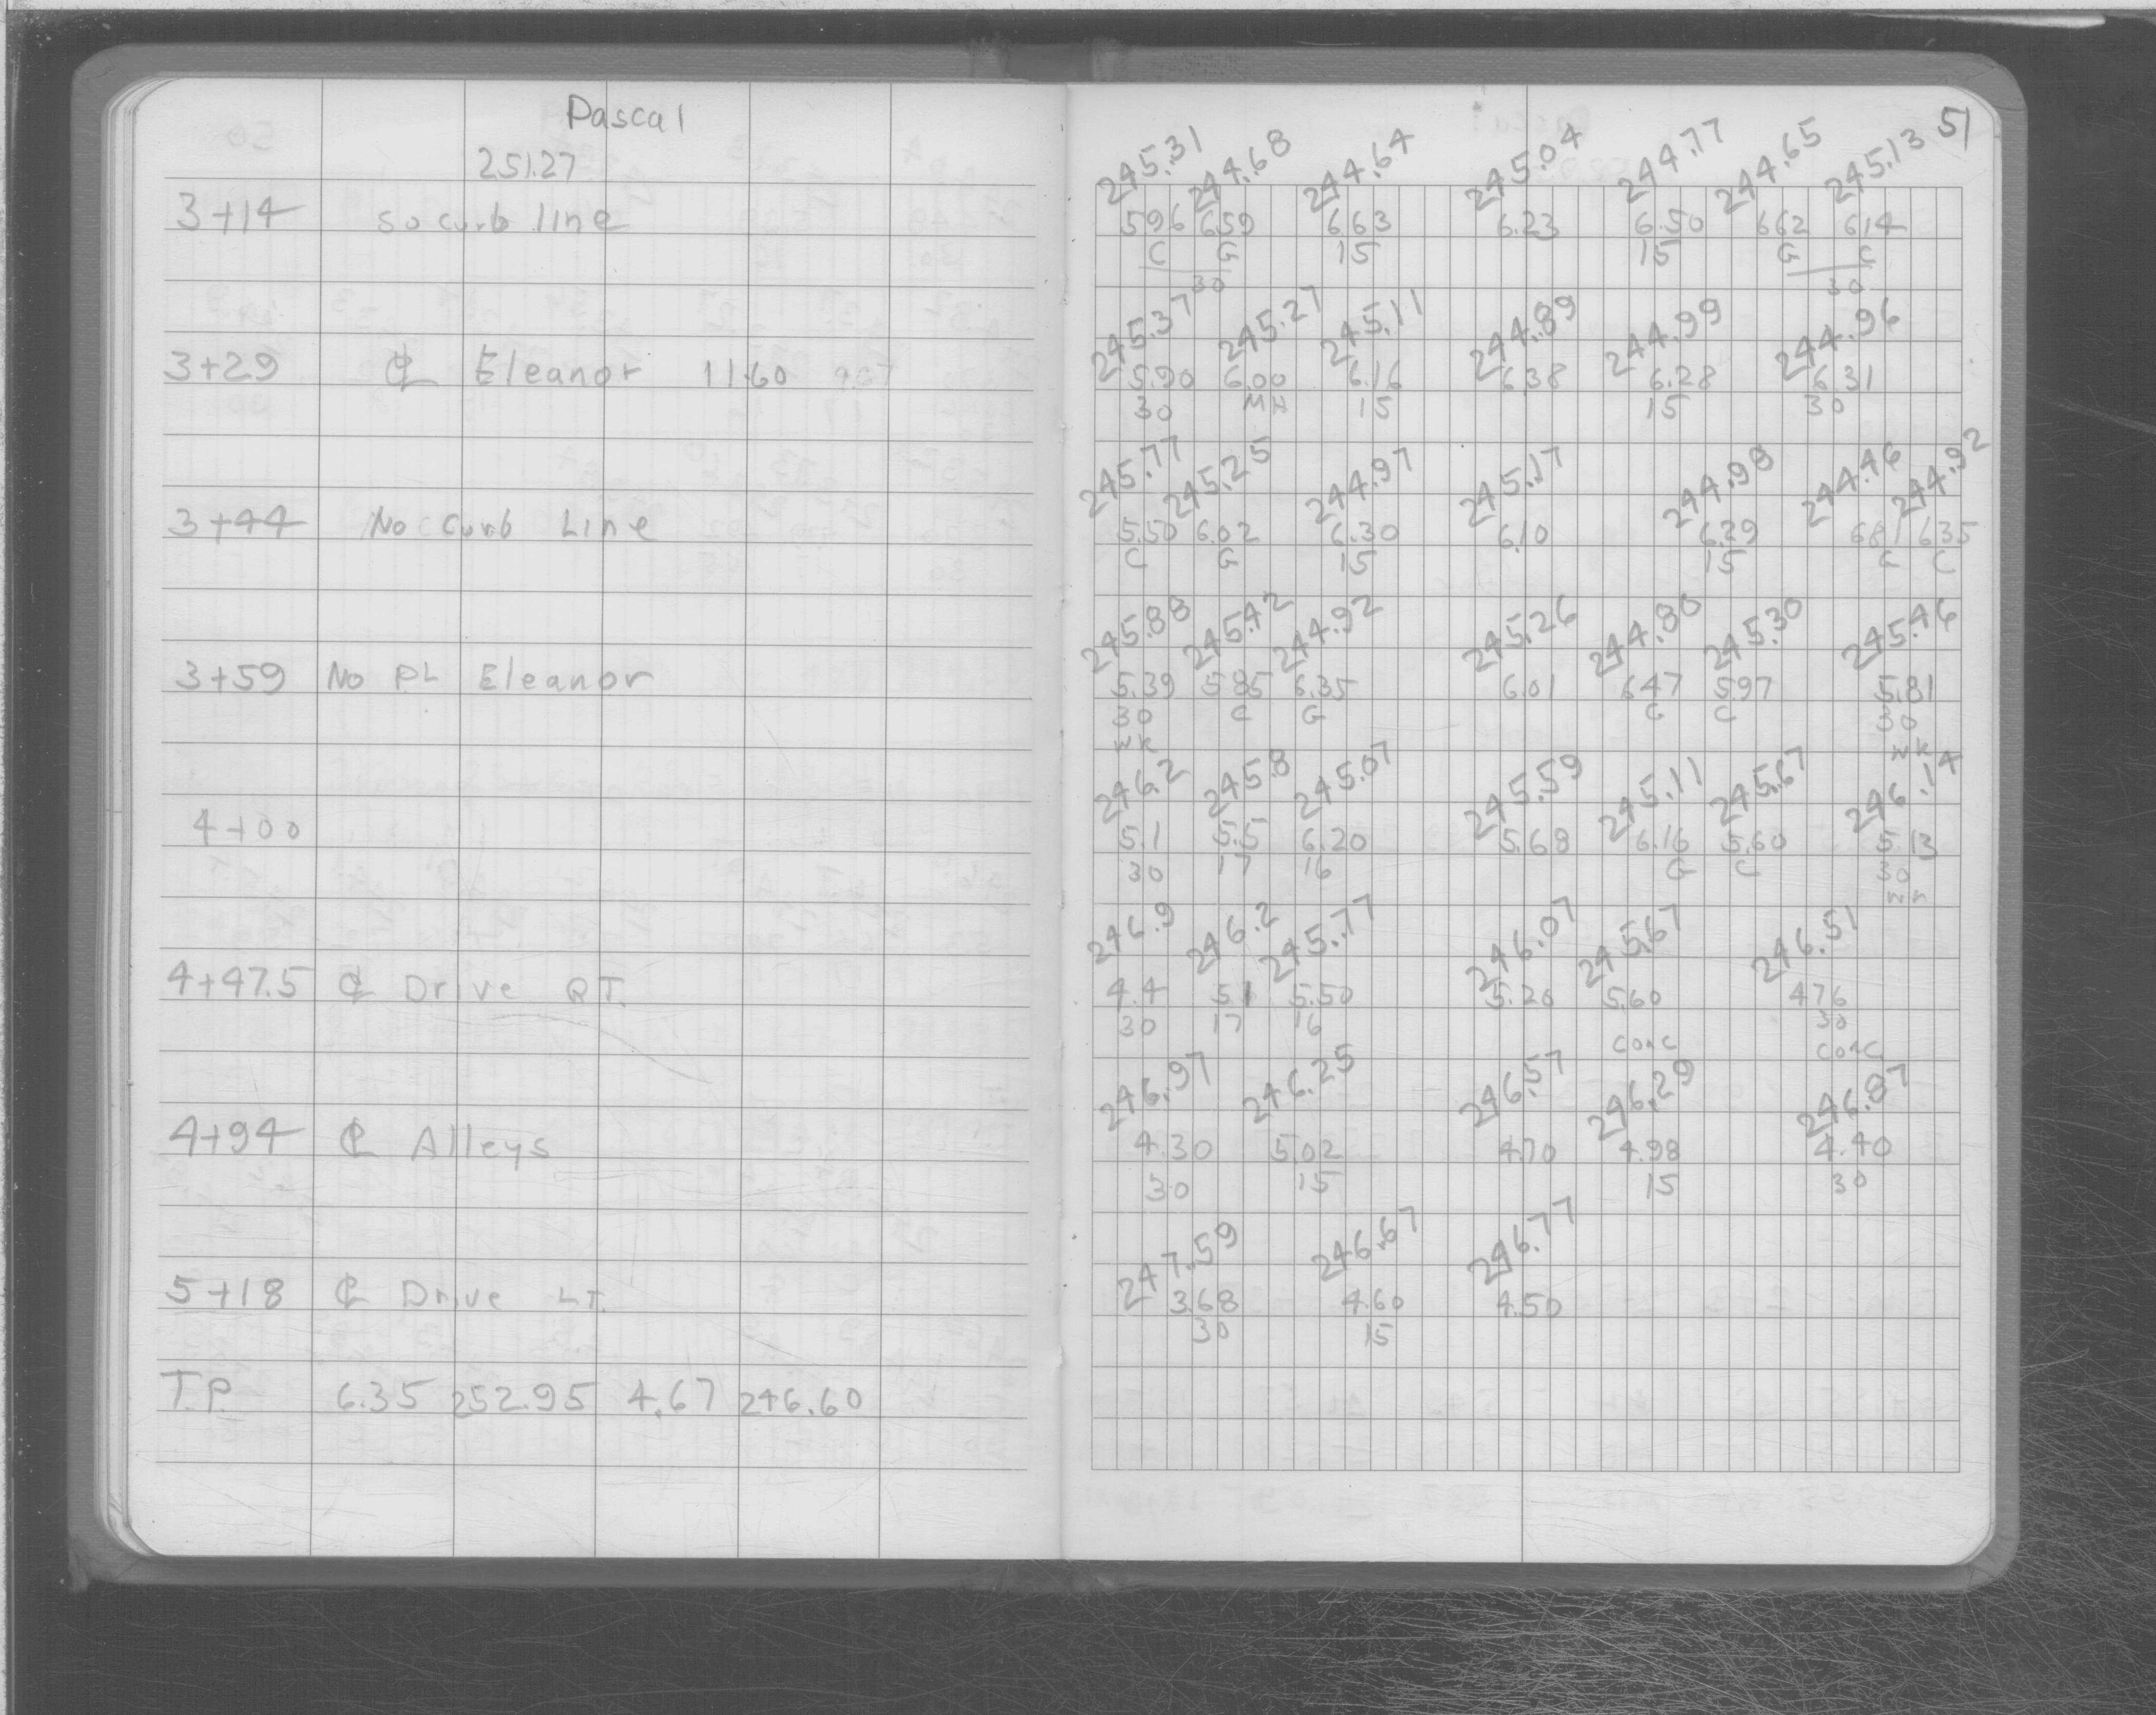 Pascal
251.27
3+14 So curb line
3+29 ℄ Eleanor 11.60 9.67
3+44 No Curb Line
3+59 No PL Eleanor
4+00
4+47.5 ℄ Drive RT.
4+94 ℄ Alleys
5+18 ℄ Drive LT.
T.P. 6.35 252.95 4.67 246.60
51
245.31 244.68 244.64 245.04 244.77 244.65 245.13
5.96 6.59 6.63 6.23 6.50 6.62 6.14
C G 15 15 G C
30 30
245.37 245.27 245.11 244.89 244.99 244.96
5.90 6.00 6.16 6.38 6.28 6.31
30 MH 15 15 30
245.77 245.25 244.97 245.17 244.98 244.46 244.92
5.50 6.02 6.30 6.10 6.29 6.81 6.35
C G 15 15 G C
245.88 245.42 244.92 245.26 244.80 245.30 245.46
5.39 5.85 6.35 6.01 6.47 5.97 5.81
30 C G G C 30
WK WK
246.2 245.8 245.07 245.59 245.11 245.67 246.14
5.1 5.5 6.20 5.68 6.16 5.60 5.13
30 17 16 G C 30
WK
246.9 246.2 245.77 246.07 245.67 246.51
4.4 5.1 5.50 5.20 5.60 4.76
30 17 16 30
conc conc
246.97 246.25 246.57 246.29 246.87
4.30 5.02 4.70 4.98 4.40
30 15 15 30
247.59 246.67 246.77
3.68 4.60 4.50
30 15